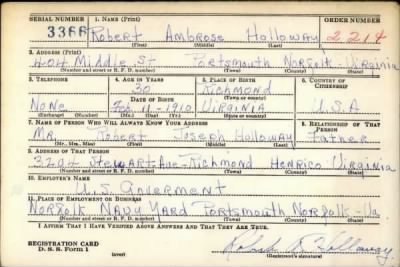 SERIAL NUMBER 1. NAME (Print) ORDER NUMBER
3366 Robert Ambrose Holloway 2214
(First) (Middle) (Last)
2. ADDRESS (Print)
404 Middle St. Portsmouth Norfolk Virginia
(Number and street or R. F. D. number) (Town) (County) (State)
3. TELEPHONE 4. AGE IN YEARS 5. PLACE OF BIRTH 6. COUNTRY OF CITIZENSHIP
30 Richmond
DATE OF BIRTH (Town or county)
None Feb 11 1910 Virginia U.S.A
(Exchange) (No.) (Mo.) (Day) (Yr.) (State or country)
7. NAME OF PERSON WHO WILL ALWAYS KNOW YOUR ADDRESS 8. RELATIONSHIP OF THAT PERSON
Mr. Robert Joseph Holloway Father
(Mr., Mrs., Miss) (First) (Middle) (Last)
9. ADDRESS OF THAT PERSON
3204 Stewart Ave-Richmond Henrico Virginia
(Number and street or R. F. D. number) (Town) (County) (State)
10. EMPLOYER'S NAME
U.S. Goverment
11. PLACE OF EMPLOYMENT OR BUSINESS
Norfolk Navy Yard Portsmouth Norfolk Va.
(Number and street or R. F. D. number) (Town) (County) (State)
I AFFIRM THAT I HAVE VERIFIED ABOVE ANSWERS AND THAT THEY ARE TRUE.
REGISTRATION CARD
D. S. S. Form 1 (Registrant's signature)
Robert A. Holloway